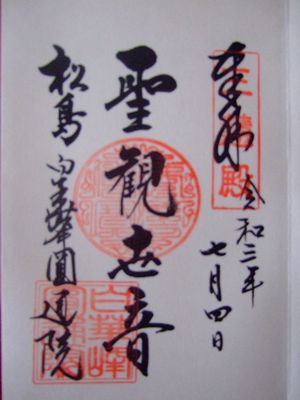 奉拝
三慧殿
令和三年
七月四日
聖觀世音
松島 白華峰圓通院
白華峰